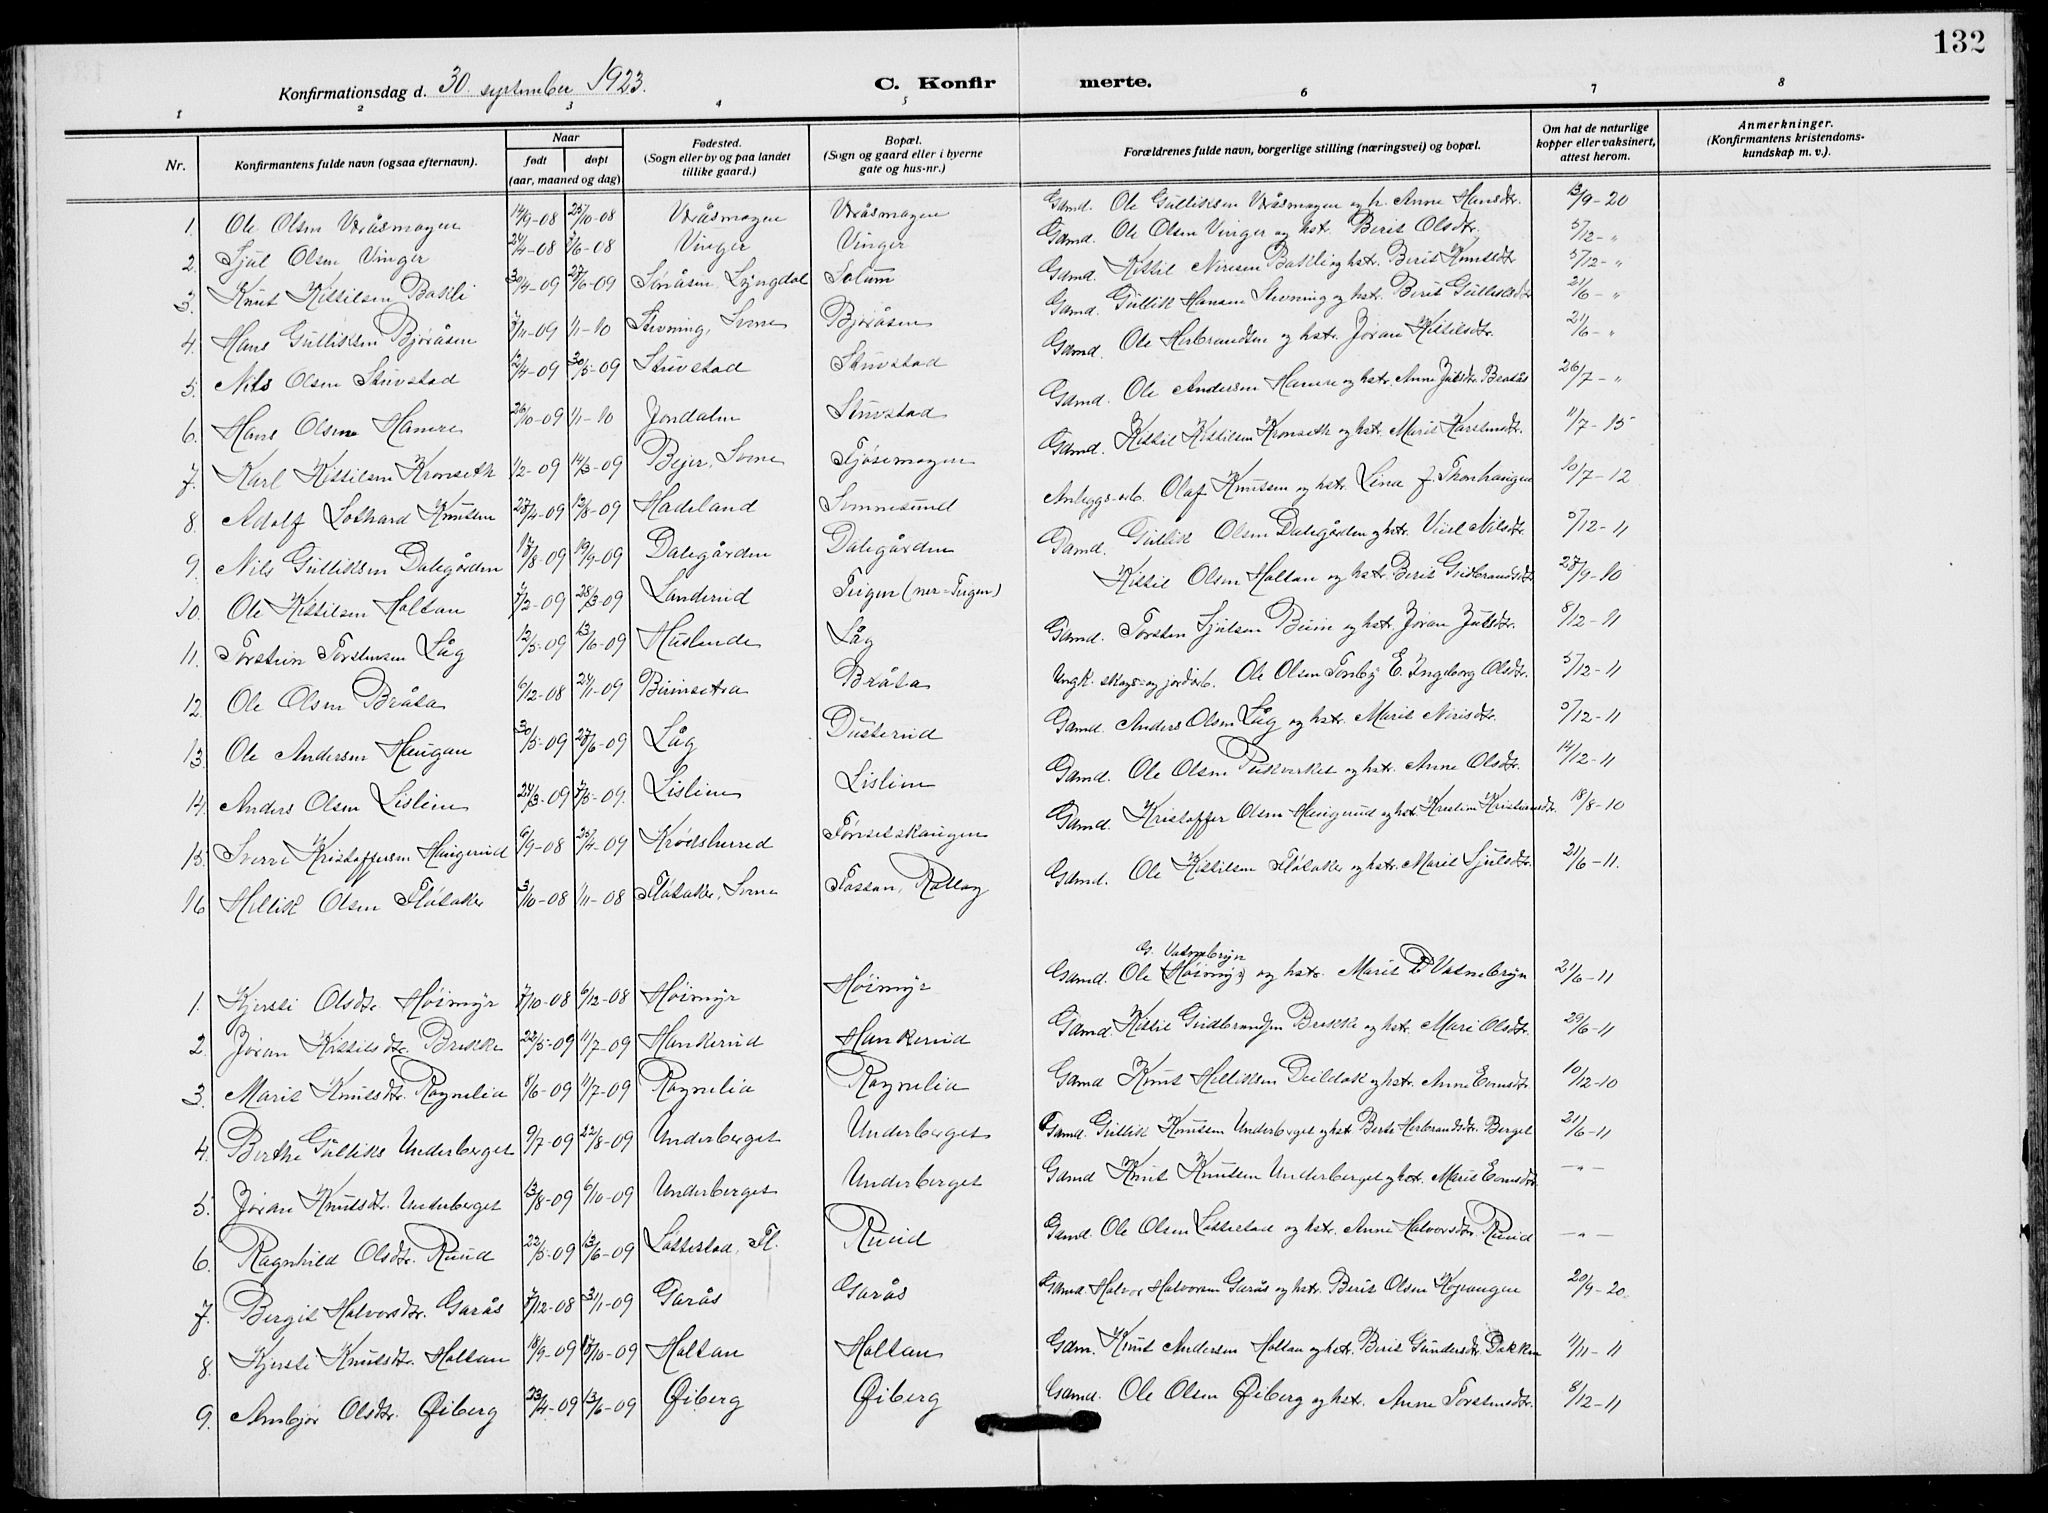 132
Konfirmationsdag d. 30. september 1923. C. Konfirmerte.
1 2 3 4 5 6 7 8
Nr. Konfirmantens fulde navn (ogsaa efternavn). Naar født døpt (aar, maaned og dag) Fødested. (Sogn eller by og paa landet tillike gaard.) Bopæl. (Sogn og gaard eller i byerne gate og hus-nr.) Forældrenes fulde navn, borgerlige stilling (næringsvei) og bopæl. Om hat de naturlige kopper eller vaksinert, attest herom. Anmerkninger. (Konfirmantens kristendomskundskap m. v.).
1. Ole Olsen Vråsmogen 14/9-08 25/10-08 Vråsmogen Vråsmogen Gamd. Ole Gulliksen Vråsmogen og h. Anne Hansdtr. 13/9-20
2. Sjul Olsen Vinger 24/4-08 7/6-08 Vinger Vinger Gamd. Ole Olsen Vinger og hst. Berit Olsdtr. 5/12-"
3. Knut Kittilsen Bakli 30/4-09 27/6-09 Lyngdal Solum Gamd. Kittil Nirisen Bakli og hstr. Berit Knutsdtr 5/12-"
4. Hans Gulliksen Bjøråsen 7/11-09 1/1-10 Stevning, Svene Bjøråsen Gamd. Gullik Hansen Stevning og hstr. Berit Gulliksdtr 21/6-"
5. Nils Olsen Stuvstad 12/4-09 30/5-09 Stuvstad Stuvstad Gamd. Ole Herbrandsen og hstr. Jøran Kittilsdtr. 21/6-"
6. Hans Olsen Hamre 26/10-09 1/1-10 Jondalen Stuvstad Gamd. Ole Andersen Hamre og hstr. Anne Julsdtr. 26/7-"
7. Karl Kittilsen Kronseth 1/2-09 14/3-09 Bejer, Svene Fjøsemogen Gamd. Kittil Kittilsen Kronseth og hstr. Marit Karstensdtr. 11/7-15
8. Adolf Lothard Knutsen 27/4-09 12/8-09 Hadeland Svennesund Anleggs-arb. Olaf Knutsen og hstr. Lina f. Thonhaugen 10/7-12
9. Nils Gulliksen Dalegården 17/8-09 19/9-09 Dalegården Dalegården Gamd. Gullik Olsen Dalegården og hstr. Nilsdtr 5/12-11
10. Ole Kittilsen Holtan 7/2-09 28/3-09 Landerud Teigen (ner-Teigen) Kittil Olsen Holtan og hstr. Berit Gudbrandsdtr 27/9-10
11. Torstein Torstensen Låg 12/5-09 13/6-09 Haslende Låg Gamd. Torsten Sjulsen Buin og hstr. Jøran Julsdtr. 8/12-11
12. Ole Olsen Bråta 6/12-08 24/1-09 Biimsetra Bråta Ungk. skogs- og jordarb. Ole Olsen Fonby E. Ingeborg Olsdtr. 5/12-11
13. Ole Andersen Haugan 30/5-09 27/6-09 Låg Dusterud Gamd. Anders Olsen Låg og hstr. Marit Nirisdtr. 5/12-11
14. Anders Olsen Lislien 24/3-09 7/5-09. Lislien Lislien Gamd. Ole Olsen Pukverket og hstr. Anne Olsdtr. 14/12-11
15. Sverre Kristoffersen Haugerud 6/9-08 25/4-09 Krødsherred Tønsetskaugen Gamd. Kristoffer Olsen Haugerud og hst. Kristine Kristiansdtr. 18/8-10
16 Hellik Olsen Fløtaker 3/10-08 1/11-08 Fløtaker, Svene Fossan, Rollag Gamd. Ole Kittilsen Fløtaker og hstr. Marit Sjulsdtr. 21/6-11.
G. Vatnebryn
1. Kjersti Olsdtr. Høimyr 7/10-08 6/12-08 Høimyr Høimyr Gamd. Ole (Høimyr) og hstr. Marit Vatnebryn 21/6-11
2. Jøran Kittilsdtr. Brekke 22/5-09 11/7-09 Hankerud Hankerud Gamd. Kittil Gudbrandsen Brekke og hst. Mari Olsdtr. 29/6-11
3. Marit Knutsdtr. Rognelia 8/6-09 11/7-09 Rognelia Rognelia Gamd Knut Helliksen Deildok og hstr. Anne Evensdtr. 10/12-10
4. Berthe Gulliks Underberget 9/7-09 22/8-09 Underberget Underberget Gamd. Gullik Knutsen Underberget og hst. Berte Herbrandsdtr. Berget 21/6-11
5. Jøran Knutsdtr. Underberget 13/8-09 6/10-09 Underberget Underberget Gamd Knut Knutsen Underberget og hst. Marit Evensdtr. -"-
6. Ragnhild Olsdtr. Ruud 22/5-09 13/6-09 Lottestad, Fl. Ruud Gamd. Ole Olsen Lottestad og hstr. Anne Halvorsdtr. Ruud -"-
7. Bergit Halvorsdtr. Garås 7/12-08 31/1-09 Garås Garås Gamd. Halvor Halvorsen Garås og hstr. Berit Olsen Kopangen 20/9-20.
8. Kjersti Knutsdtr. Holtan 18/9-09 17/10-09 Holtan Holtan Gdm. Knut Andersen Holtan og hst. Berit Gundersdtr. Dokken 1/11-11
9. Ambjør Olsdtr. Øiberg 23/4-09 13/6-09 Øiberg Øiberg Gamd. Ole Olsen Øiberg og hstr. Anne Torstensdtr. 8/12-11